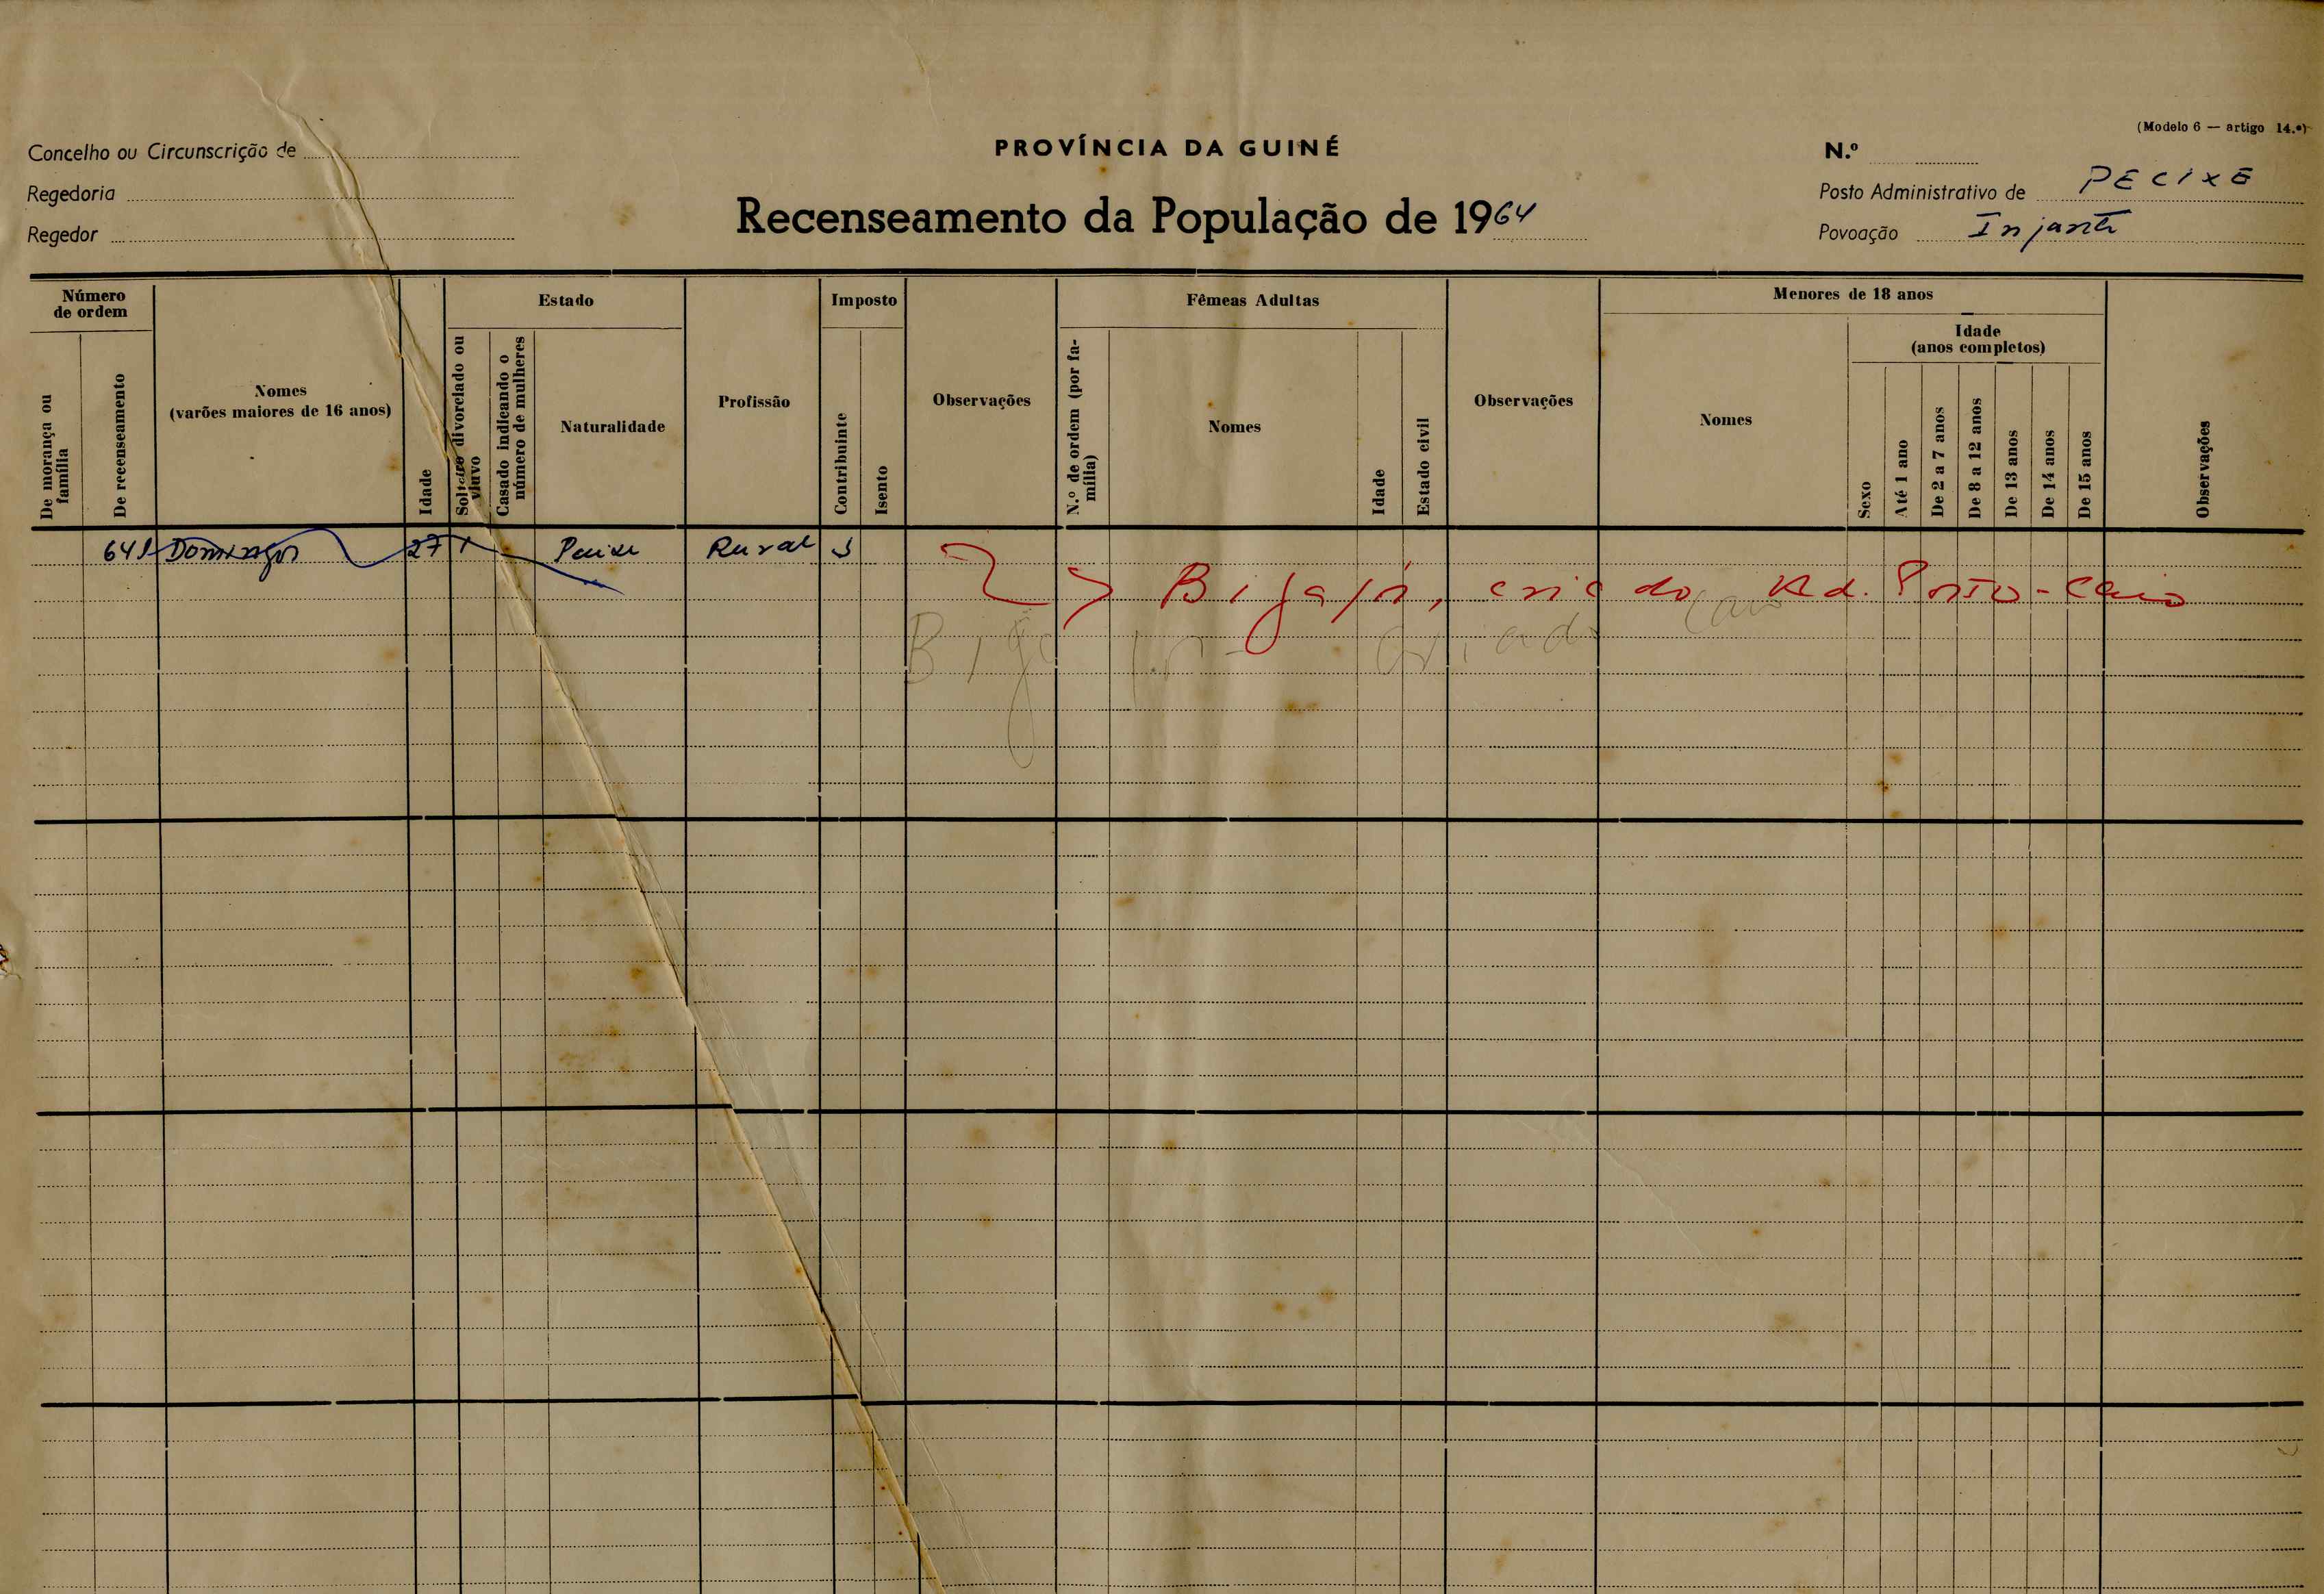 (Modelo 6 — artigo 14.º)
Concelho ou Circunscrição de
PROVÍNCIA DA GUINÉ
N.º
Regedoria
Recenseamento da População de 1964
Posto Administrativo de PECIXE
Regedor
Povoação
Número de ordem
De morança ou família
De recenseamento
Nomes
(varões maiores de 16 anos)
Idade
Estado
Solteiro divorciado ou viuvo
Casado indicando o número de mulheres
Naturalidade
Profissão
Imposto
Contribuinte
Isento
Observações
Fêmeas Adultas
N.º de ordem (por família)
Nomes
Idade
Estado civil
Observações
Menores de 18 anos
Nomes
Sexo
Idade
(anos completos)
Até 1 ano
De 2 a 7 anos
De 8 a 12 anos
De 13 anos
De 14 anos
De 15 anos
Observações
641 Domingos 27 1 Rural
criado
criado